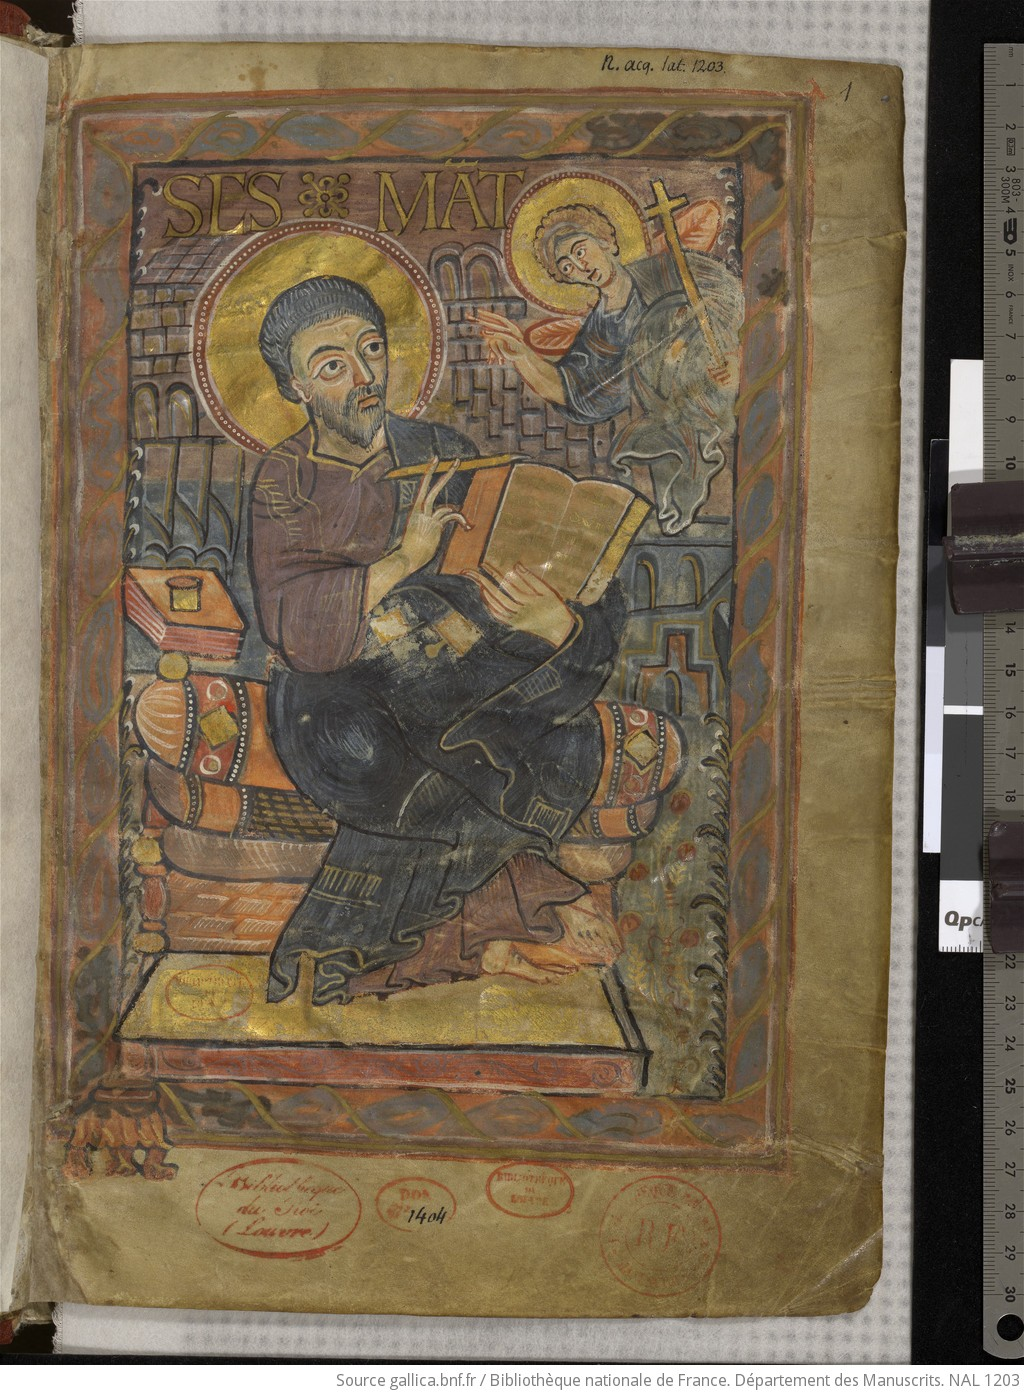 N. acq. lat. 1203.
1
SCS MAT
Bibliotheque
du Roi
(Louvre)
DON
1404
BIBLIOTHÈQUE
mm
1
2
3
803-
300M
4
5
INDEX
FRANCE
6
7
8
9
10
11
14
15
16
17
18
22
23
24
25
26
27
28
29
30
QPCA
Source gallica.bnf.fr / Bibliothèque nationale de France. Département des Manuscrits. NAL 1203